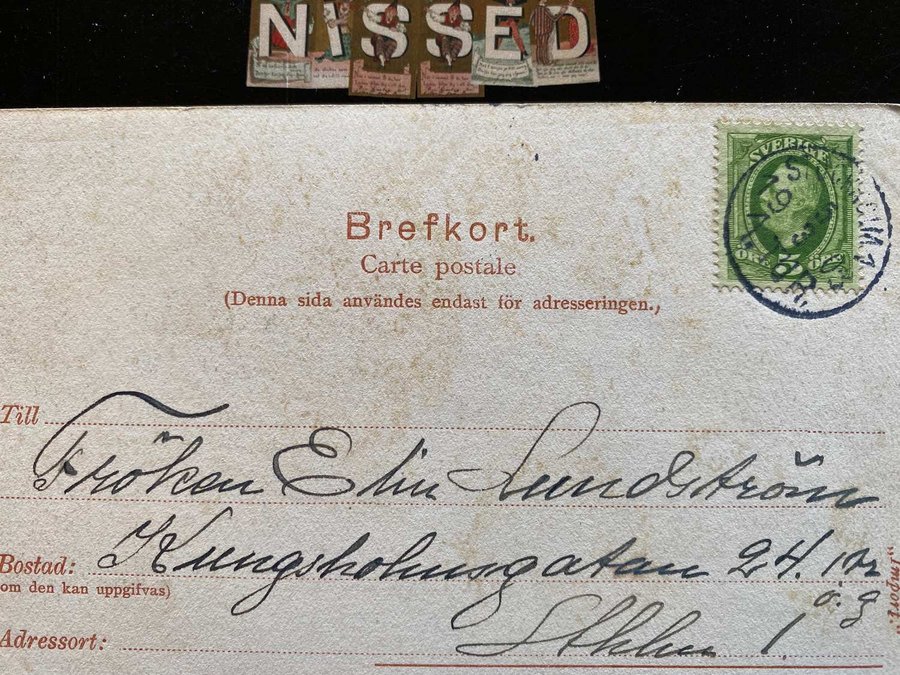 NISSED
SVERIGE
5
Brefkort.
Carte postale
(Denna sida användes endast för adresseringen.,
Till
Fröken Elin Lundström
Bostad: Kungsholmsgatan 24. 1 tr
om den kan uppgifvas)
ö. g
Adressort: Sthlm 1
"Import."